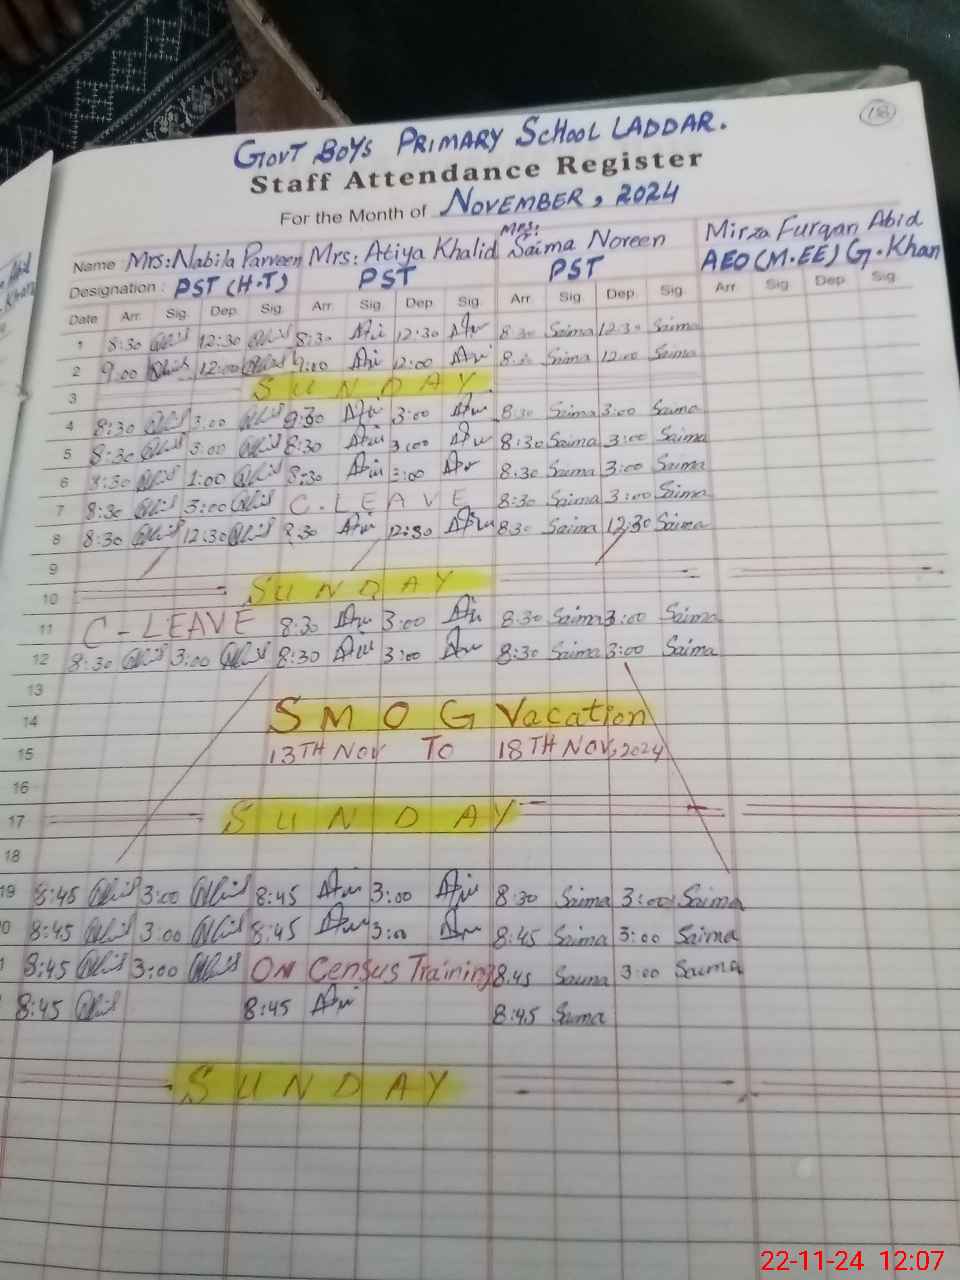 18
GOVT BOYS PRIMARY SCHOOL LADDAR.
Staff Attendance Register
For the Month of NOVEMBER, 2024
Name Mrs: Nabila Parveen Mrs: Atiya Khalid Mrs: Saima Noreen Mirza Furqan Abid
Designation: PST (H.T) PST PST AEO (M.EE) G. Khan
Date Arr. Sig. Dep. Sig. Arr. Sig. Dep. Sig. Arr. Sig. Dep. Sig. Arr. Sig. Dep. Sig.
1 8:30 12:30 8:30 12:30 8:30 Saima 12:30 Saima
2 9:00 12:00 9:00 12:00 Saima 12:00 Saima
3 SUNDAY
4 8:30 3:00 3:00 8:30 Saima 3:00 Saima
5 8:30 3:00 8:30 3:00 8:30 Saima 3:00 Saima
6 8:30 1:00 8:30 3:00 8:30 Saima 3:00 Saima
7 8:30 3:00 C. LEAVE 8:30 Saima 3:00 Saima
8 8:30 12:30 8:30 12:30 8:30 Saima 12:30 Saima
9
10 SUNDAY
11 C-LEAVE 8:30 3:00 8:30 Saima 3:00 Saima
12 8:30 3:00 8:30 3:00 8:30 Saima 3:00 Saima
13
14 SMOG Vacation
15 13TH NOV TO 18TH NOV, 2024
16
17 SUNDAY
18
19 8:45 3:00 8:45 3:00 8:30 Saima 3:00 Saima
0 8:45 3:00 8:45 3:00 8:45 Saima 3:00 Saima
1 8:45 3:00 ON Census Training 8:45 Saima 3:00 Saima
8:45 8:45 8:45 Saima
SUNDAY
22-11-24 12:07